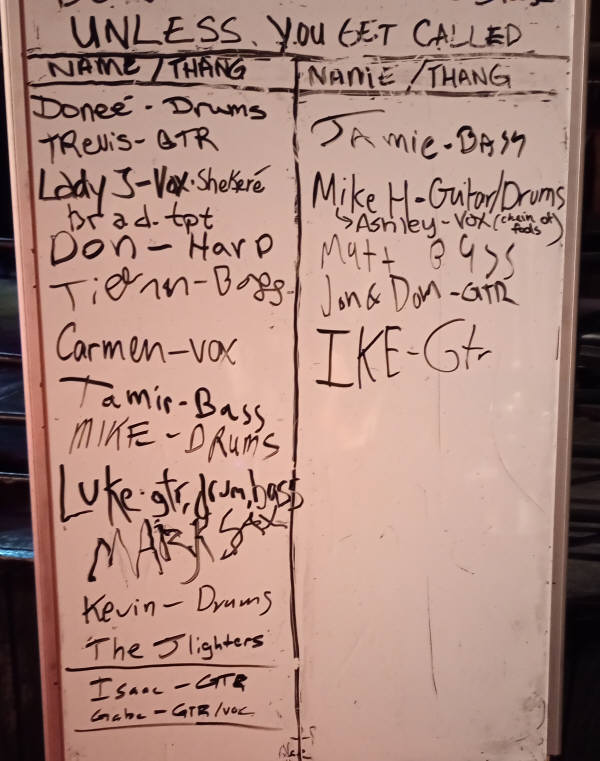 UNLESS YOU GET CALLED
NAME/THANG
Doneé - Drums
TRevis - GTR
Lady J - Vox. Shekeré
Brad - tpt
Don - Harp
Bass
Carmen - vox
Tamir - Bass
MIKE - DRUMS
Luke - gtr, drum, bass
MARK SAX
Kevin - Drums
The Jlighters
Isaac - GTR
Gabe - GTR/voc
NAME/THANG
JAmie - BASS
Mike H - Guitar/Drums
↳ Ashley - Vox (chain of fools)
Matt BASS
Jon & Dom - GTR
IKE - Gtr